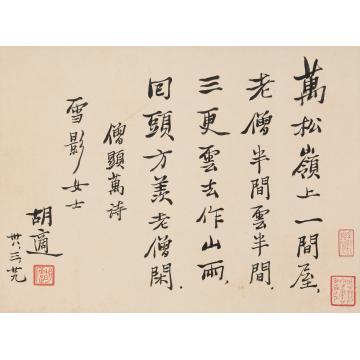 萬松嶺上一間屋,
老僧半間雲半間.
三更雲去作山雨,
回頭方羨老僧閑.
僧顯萬詩
雪影女士
胡適
卅八.三.廿九